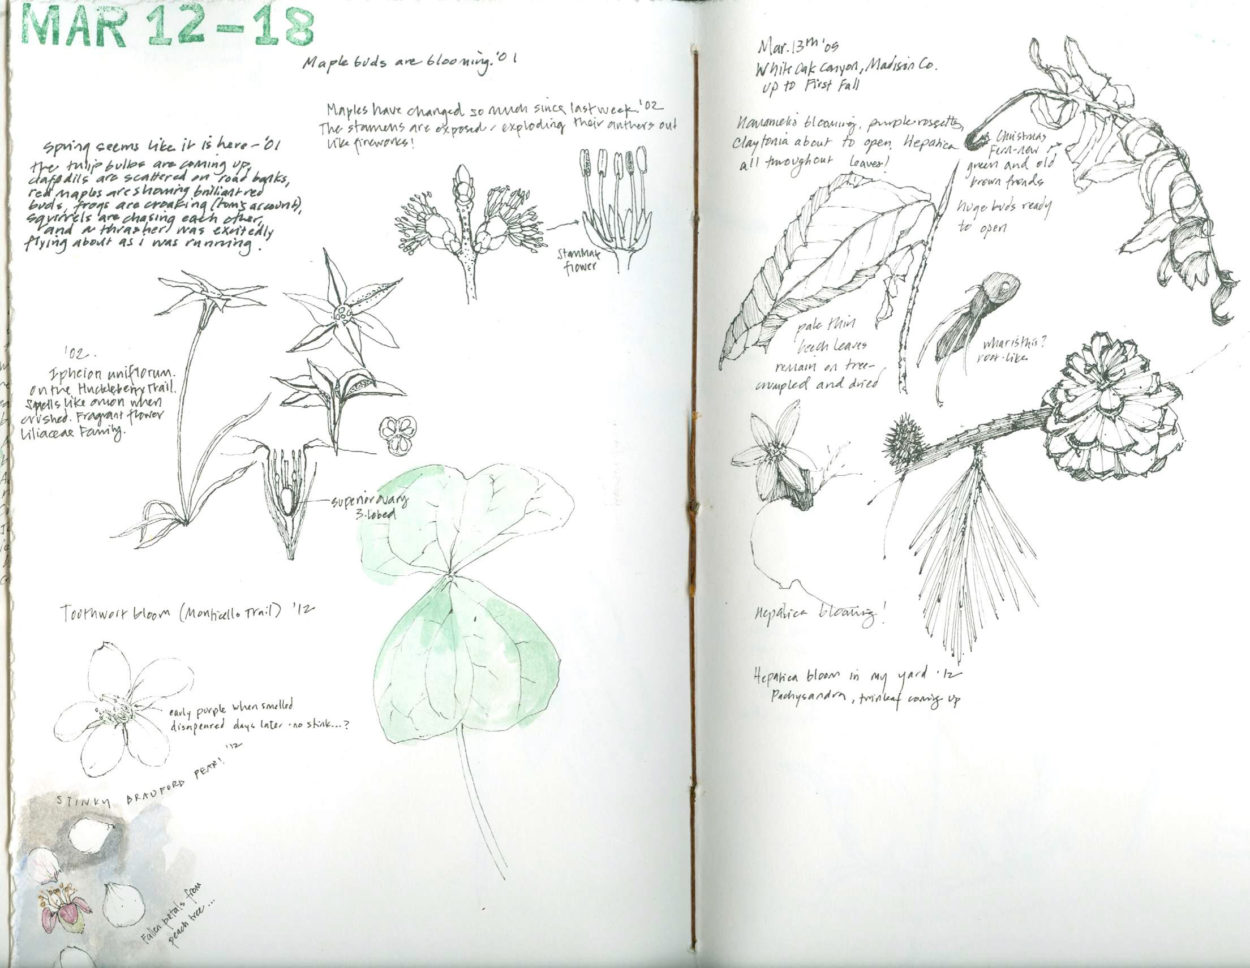 MAR 12-18
Maple buds are blooming. '01
Maples have changed so much since last week. '02
The stamens are exposed - exploding their anthers out
like fireworks!
Spring seems like it is here - '01
the tulip bulbs are coming up,
dafodils are scattered on road banks,
red maples are showing brilliant red
buds, frogs are croaking (tom's account),
squirrels are chasing each other,
and a thrasher was excitedly
flying about as i was running.
Staminate
flower
'02.
Ipheion uniflorum.
On the Huckleberry Trail.
Smells like onion when
crushed. Fragrant flower
Liliaceae Family.
superior ovary
3-lobed
Toothwort bloom (Monticello Trail) '12
early purple when smelled
disapeared days later - no stink...?
STINKY BRADFORD PEAR! '12
Fallen petals from
peach tree...
Mar. 13th '05
White Oak Canyon, Madison Co.
Up to First Fall
blooming, purple rosettes,
Claytonia about to open, Hepatica
all throughout leaves!
Christmas
Fern - new
green and old
brown fronds
huge buds ready
to open
pale thin
beech leaves
remain on tree -
crumpled and dried
what is this?
root-like
Hepatica blooming!
Hepatica bloom in my yard '12
Pachysandra, twinleaf coming up